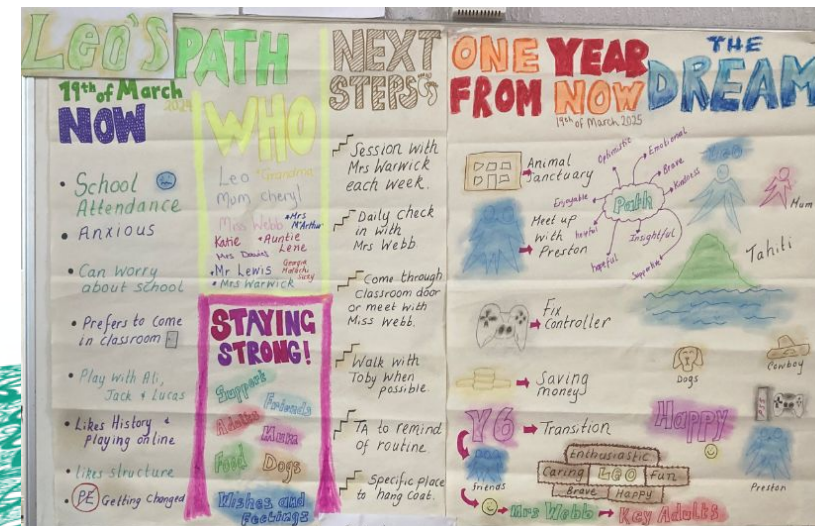 Leo's PATH
19th of March
2024
NOW
• School
Attendance
• Anxious
• Can worry
about school
• Prefers to come
in classroom
• Play with Ali,
Jack & Lucas
• Likes History &
playing online
• Likes structure
• PE Getting Changed
WHO
Leo • Grandma
Mum Cheryl
Miss Webb • Mrs
McArthur
Katie • Auntie
Lene
Mrs Davies
• Mr Lewis
Georgia
Malachi
Suzy
• Mrs Warwick
STAYING
STRONG!
Support
Friends
Adults
Mum
Food
Dogs
Wishes and
Feelings
NEXT
STEPS
Session with
Mrs Warwick
each week.
Daily check
in with
Mrs Webb.
Come through
classroom door
or meet with
Miss Webb.
Walk with
Toby when
possible.
TA to remind
of routine.
Specific place
to hang coat.
ONE YEAR
FROM NOW
19th of March 2025
Animal
Sanctuary
Meet up
with
Preston
Fix
Controller
Saving
money
Y6 Transition
friends
Mrs Webb
Key Adults
Optimistic
Emotional
Brave
Kindness
Enjoyable
Path
helpful
Insightful
hopeful
Supportive
Enthusiastic
Caring LEO Fun
Brave Happy
THE
DREAM
LEO
Mum
Tahiti
Dogs
Cowboy
Happy
Preston